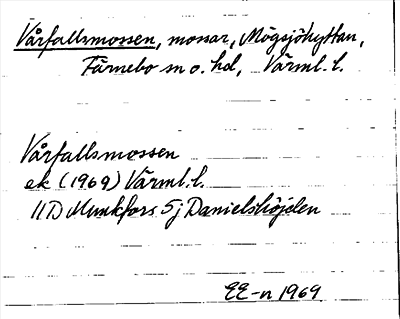 Vårfallsmossen, mossar, Mögsjöhyttan,
Färnebo sn o. hd, Värml. l.
Vårfallsmossen
ek (1969) Värml. l.
11D Munkfors 5j Danielshöjden
EE-n 1969